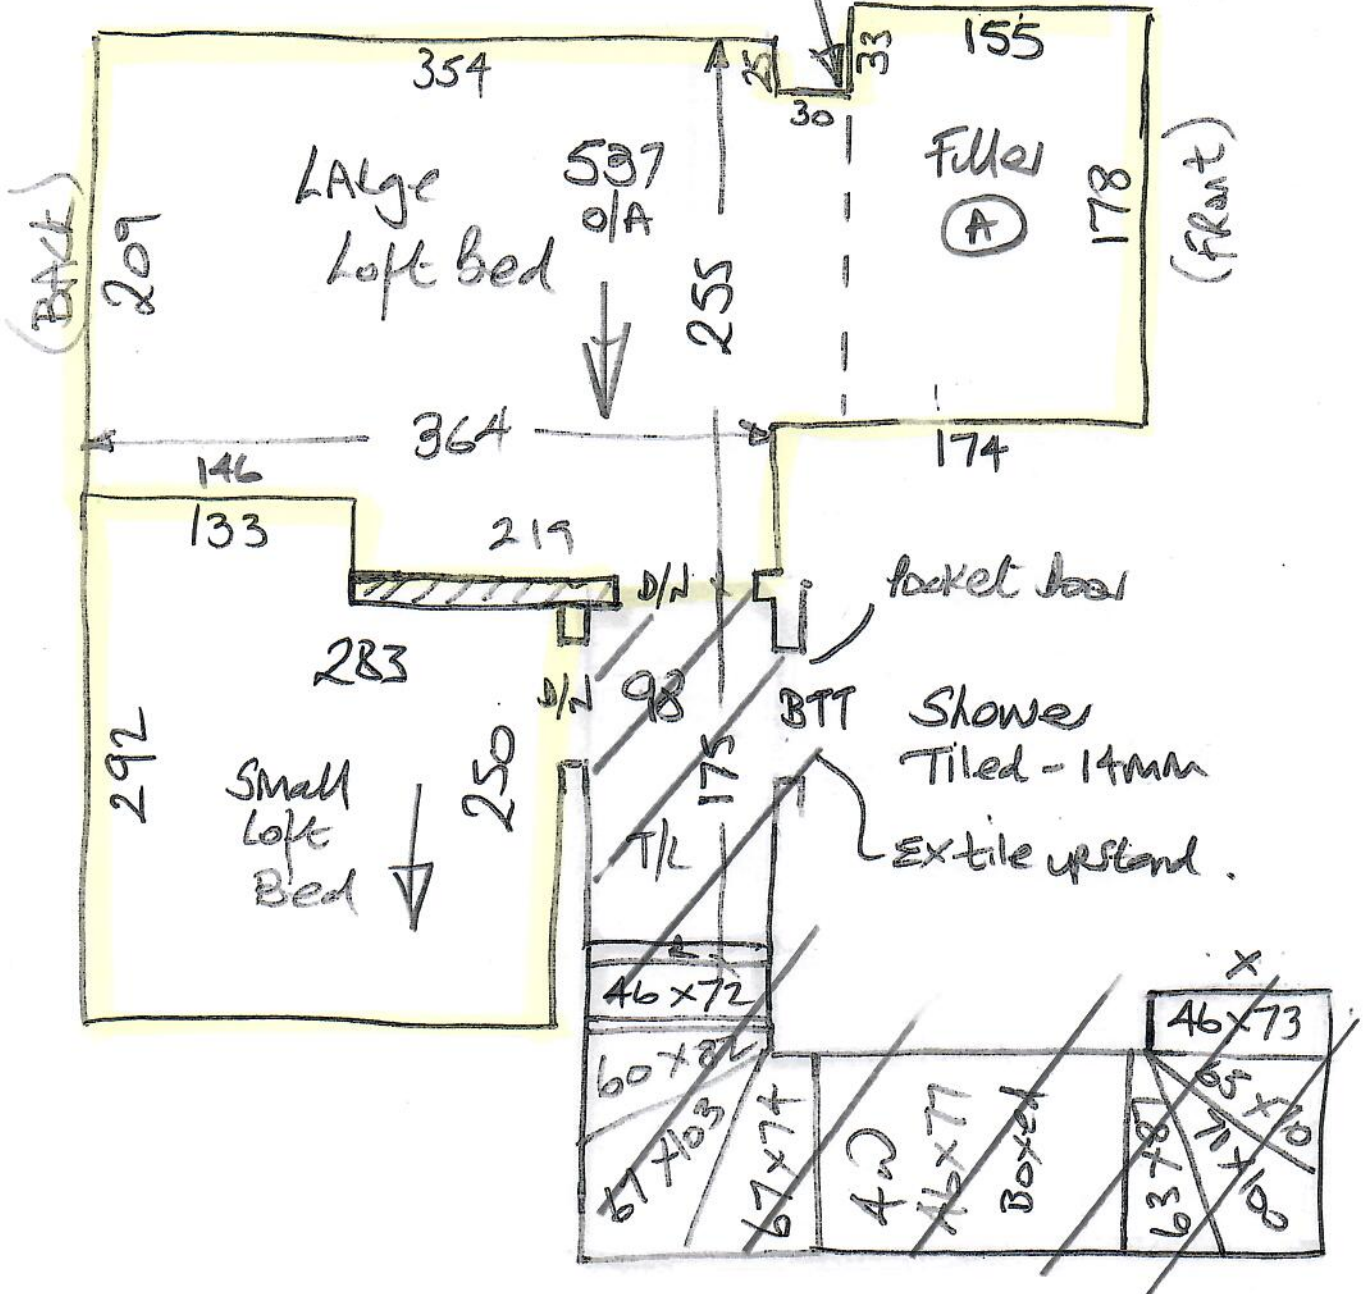 354
25
30
33
155
LARge
Loft Bed
537
O/A
255
Filler
A
178
(FRont)
(BACK)
209
364
174
146
133
219
D/N
Pocket Door
283
D/N
98
BTT
Shower
Tiled - 14mm
292
Small
Loft
Bed
250
175
T/L
Ex tile upstand.
46 x 72
60 x 82
67 x 103
67 x 74
4W
46 x 77
Boxed
63 x 87
X
46 x 73